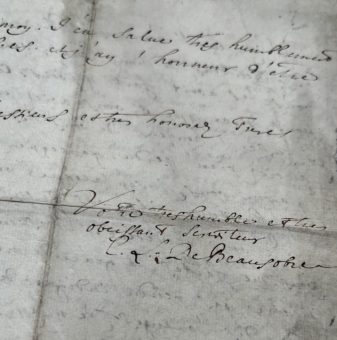 moy. J'en salue tres humblement
et j'ay l'honneur d'être
et tres honorez Freres
Votre treshumble et tres
obeissant serviteur
C. L. De Beausobre